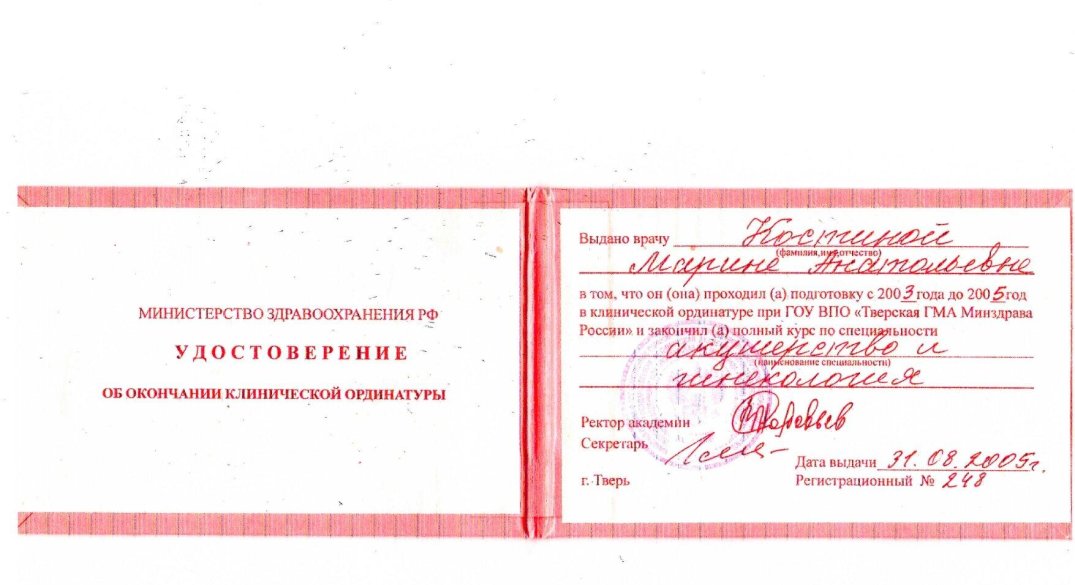 МИНИСТЕРСТВО ЗДРАВООХРАНЕНИЯ РФ
УДОСТОВЕРЕНИЕ
ОБ ОКОНЧАНИИ КЛИНИЧЕСКОЙ ОРДИНАТУРЫ
Выдано врачу Костиной
(фамилия, имя, отчество)
Марине Анатольевне
в том, что он (она) проходил (а) подготовку с 2003 года до 2005 год
в клинической ординатуре при ГОУ ВПО «Тверская ГМА Минздрава
России» и закончил (а) полный курс по специальности
акушерство и
(наименование специальности)
гинекология
Ректор академии
Секретарь
Дата выдачи 31.08.2005г.
г. Тверь
Регистрационный № 248